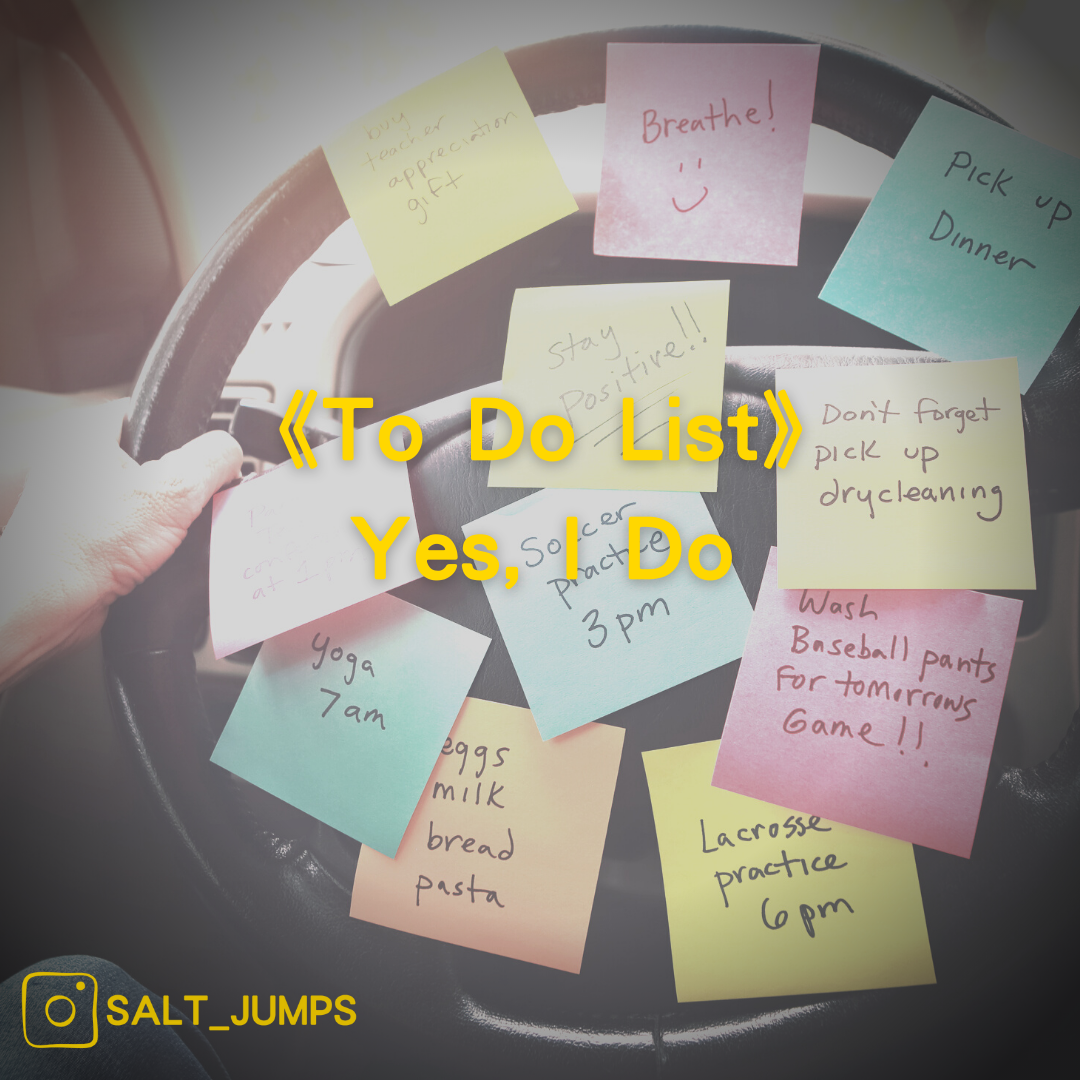 buy
teacher
appreciation
gift
Breathe!
Pick up
Dinner
Stay
Positive!!
《To Do List》
Yes, I Do
Don't forget
pick up
drycleaning
at
Soccer
practice
3 pm
Wash
Baseball pants
For tomorrows
Game!!
Yoga
7am
eggs
milk
bread
pasta
Lacrosse
practice
6 pm
SALT_JUMPS